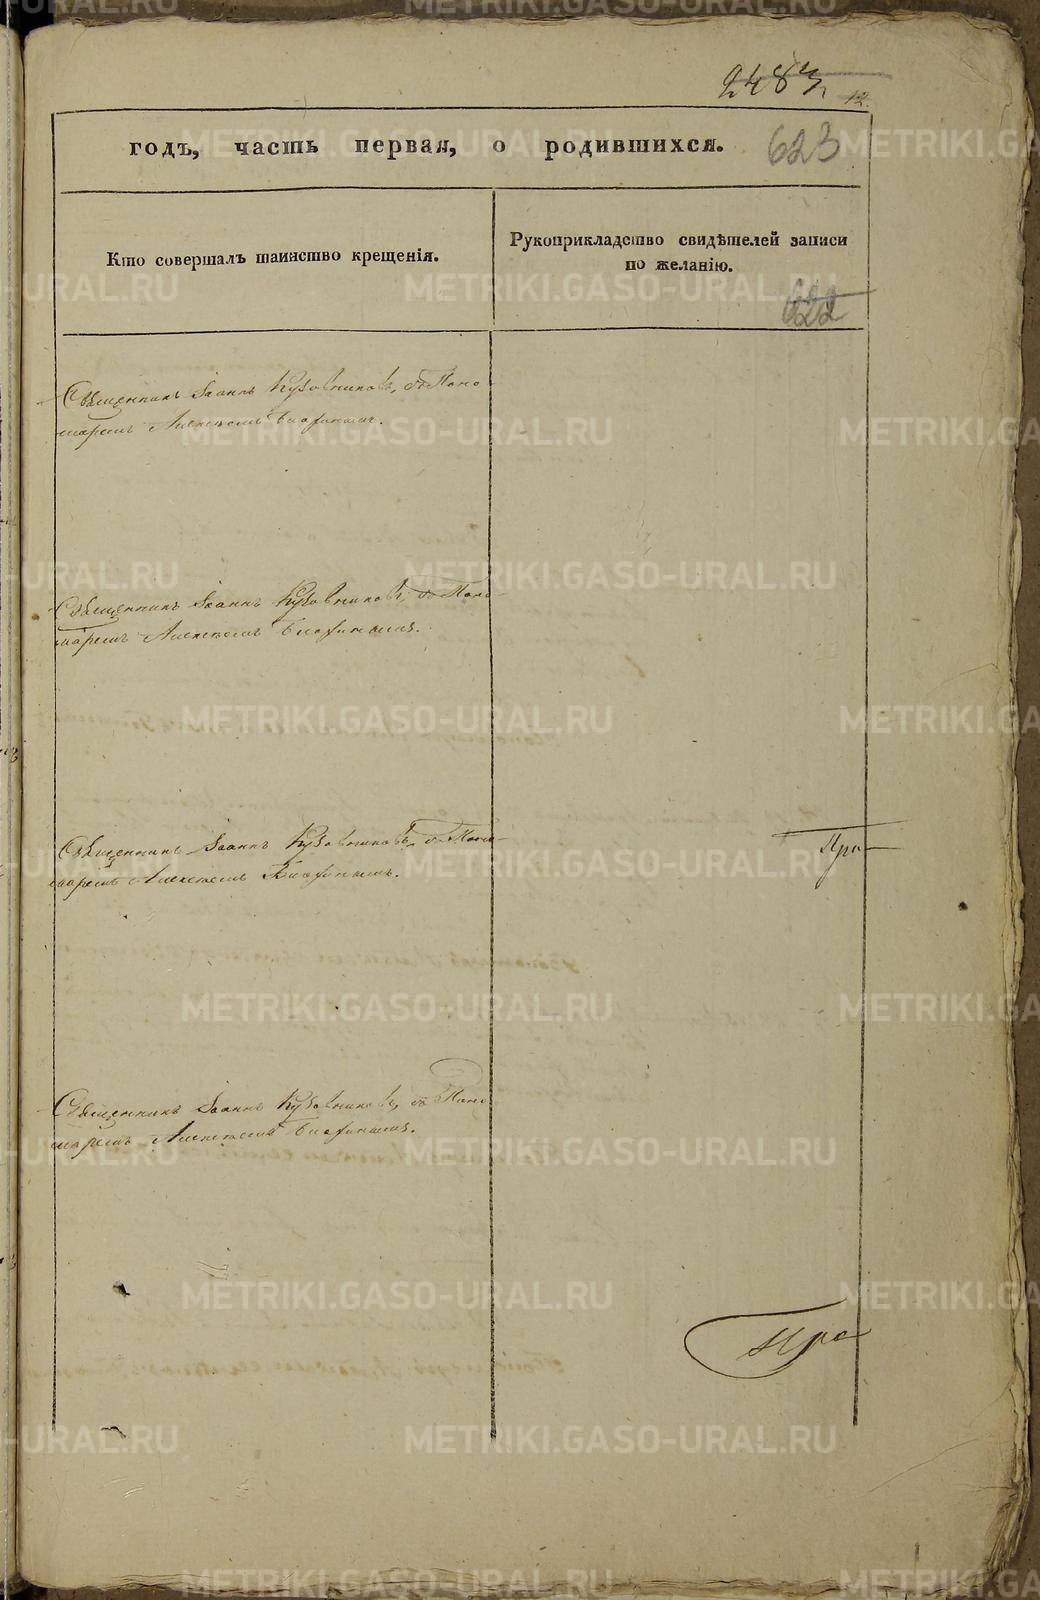 2483
12.
годъ, часть первая, о родившихся. 623
Кто совершалъ таинство крещенія.
Рукоприкладство свидѣтелей записи
по желанію.
622
Священникъ Іоаннъ Кузовниковъ, съ Поно
маремъ Алексѣемъ
Священникъ Іоаннъ Кузовниковъ, съ Поно-
маремъ Алексѣемъ
Священникъ Іоаннъ Кузовниковъ, съ Поно-
маремъ Алексѣемъ
Священникъ Іоаннъ Кузовниковъ, съ Поно
маремъ Алексѣемъ
METRIKI.GASO-URAL.RU